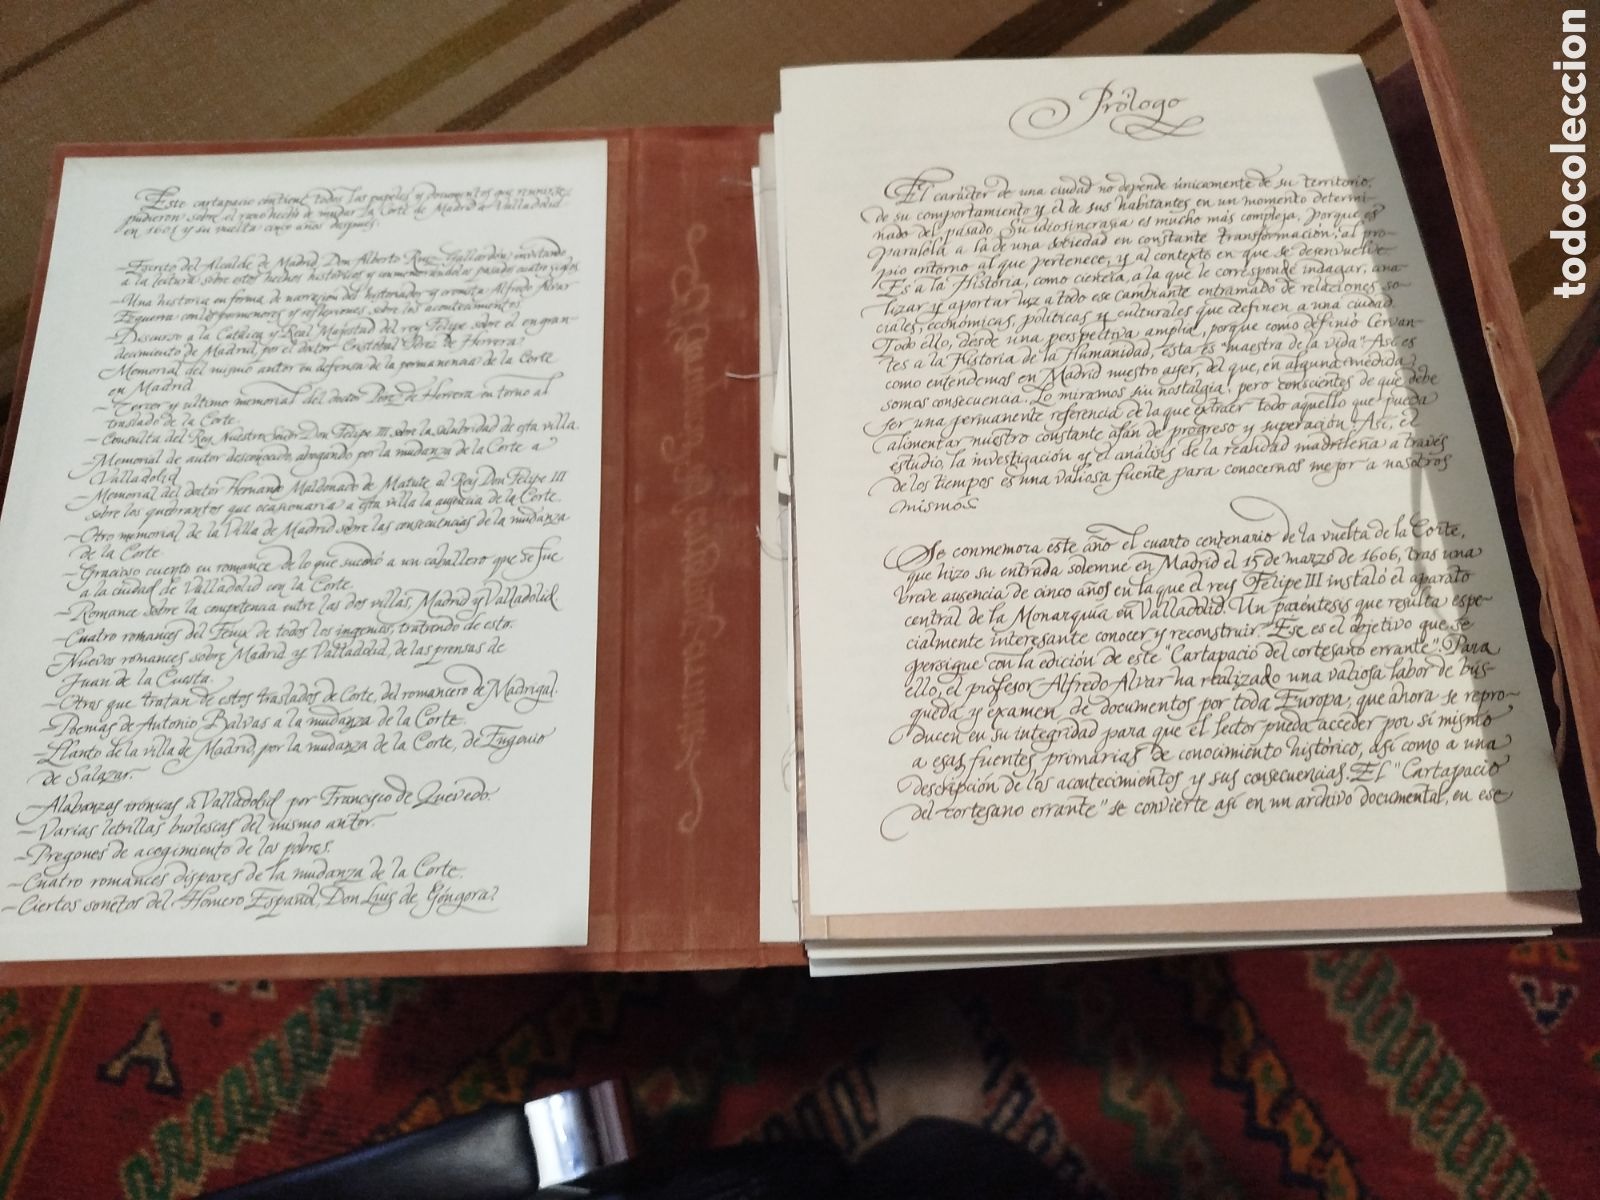 Este cartapacio contiene todos los papeles y documentos que reunirse
pudieron sobre el raro hecho de mudar la Corte de Madrid a Valladolid
en 1601 y su vuelta cinco años después.
—Escrito del Alcalde de Madrid, Don Alberto Ruiz-Gallardón, invitando
a la lectura sobre estos hechos históricos y conmemorándolos pasados cuatro siglos.
—Una historia en forma de narración del historiador y cronista Alfredo Alvar
Ezquerra con los pormenores y reflexiones sobre los acontecimientos.
—Discurso a la Católica y Real Majestad del rey Felipe sobre el engran-
decimiento de Madrid, por el doctor Cristóbal Pérez de Herrera.
Memorial del mismo autor en defensa de la permanencia de la Corte
en Madrid.
—Tercer y ultimo memorial del doctor Pérez de Herrera en torno al
traslado de la Corte.
—Consulta del Rey Nuestro Señor Don Felipe III sobre la salubridad de esta villa.
—Memorial de autor desconocido, abogando por la mudanza de la Corte a
Valladolid.
—Memorial del doctor Hernando Maldonado de Matute al Rey Don Felipe III
sobre los quebrantos que ocasionaría a esta villa la ausencia de la Corte.
—Otro memorial de la Villa de Madrid sobre las consecuencias de la mudanza
de la Corte.
—Gracioso cuento en romance de lo que sucedió a un caballero que se fue
a la ciudad de Valladolid con la Corte.
—Romance sobre la competencia entre las dos villas, Madrid y Valladolid.
—Cuatro romances del Fénix de todos los ingenios, tratando de esto.
Nuevos romances sobre Madrid y Valladolid, de las prensas de
Juan de la Cuesta.
—Otros que tratan de estos traslados de Corte, del romancero de Madrigal.
—Poemas de Antonio Balvas a la mudanza de la Corte.
—Llanto de la villa de Madrid por la mudanza de la Corte, de Eugenio
de Salazar.
Alabanzas irónicas a Valladolid por Francisco de Quevedo.
—Varias letrillas burlescas del mismo autor.
—Pregones de acogimiento de los pobres.
—Cuatro romances dispares de la mudanza de la Corte.
—Ciertos sonetos del Homero Español, Don Luis de Góngora.
Prólogo
El carácter de una ciudad no depende únicamente de su territorio,
de su comportamiento y el de sus habitantes en un momento determi-
nado del pasado. Su idiosincrasia es mucho más compleja, porque es
paralela a la de una sociedad en constante transformación, al pro-
pio entorno al que pertenece, y al contexto en que se desenvuelve.
Es a la Historia, como ciencia, a la que le corresponde indagar, ana-
lizar y aportar luz a todo ese cambiante entramado de relaciones so-
ciales, económicas, políticas y culturales que definen a una ciudad.
Todo ello, desde una perspectiva amplia, porque como definió Cervan-
tes a la Historia de la Humanidad, ésta es "maestra de la vida". Así es
como entendemos en Madrid nuestro ayer, del que, en alguna medida,
somos consecuencia. Lo miramos sin nostalgia, pero conscientes de que debe
ser una permanente referencia de la que extraer todo aquello que pueda
alimentar nuestro constante afán de progreso y superación. Así, el
estudio, la investigación y el análisis de la realidad madrileña a través
de los tiempos es una valiosa fuente para conocernos mejor a nosotros
mismos.
Se conmemora este año el cuarto centenario de la vuelta de la Corte,
que hizo su entrada solemne en Madrid el 15 de marzo de 1606, tras una
breve ausencia de cinco años en la que el rey Felipe III instaló el aparato
central de la Monarquía en Valladolid. Un paréntesis que resulta espe-
cialmente interesante conocer y reconstruir. Ese es el objetivo que se
persigue con la edición de este "Cartapacio del cortesano errante". Para
ello, el profesor Alfredo Alvar ha realizado una valiosa labor de bús-
queda y examen de documentos por toda Europa, que ahora se repro-
ducen en su integridad para que el lector pueda acceder por sí mismo
a esas fuentes primarias de conocimiento histórico, así como a una
descripción de los acontecimientos y sus consecuencias. El "Cartapacio
del cortesano errante" se convierte así en un archivo documental, en ese
todocoleccion